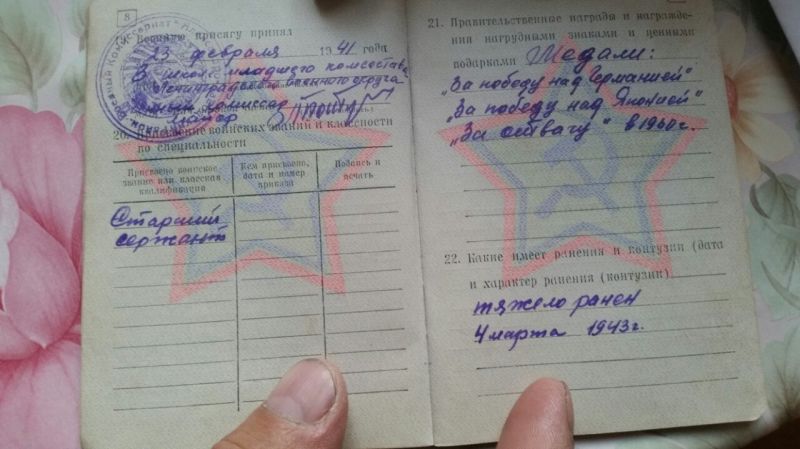 8
19. Военную присягу принял
23 февраля 1941 года
В школе младшего комсостава
Ленинградского военного округа
майор
20. Присвоение воинских званий и классности
по специальности
Присвоено воинское
звание или классная
квалификация
Кем присвоено,
дата и номер
приказа
Подпись и
печать
Старший
сержант
21. Правительственные награды и награжде-
ния нагрудными знаками и ценными
подарками Медали:
„За победу над Германией"
„За победу над Японией"
„За отвагу" в 1960 г.
22. Какие имеет ранения и контузии (дата
и характер ранения (контузии)
тяжело ранен
4 марта 1943 г.